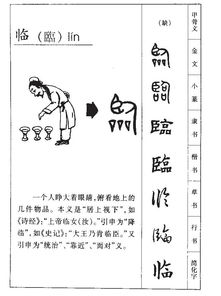 临（臨）lín
一个人睁大着眼睛，俯看地上的
几件物品。本义是“居上视下”，如
《诗经》：“上帝临女(汝)。”引申为“降
临”，如《史记》：“大王乃肯临臣。”又
引申为“统治”、“靠近”、“面对”义。
(缺)
臨
臨
临
临
甲骨文
金文
小篆
隶书
楷书
草书
行书
简化字